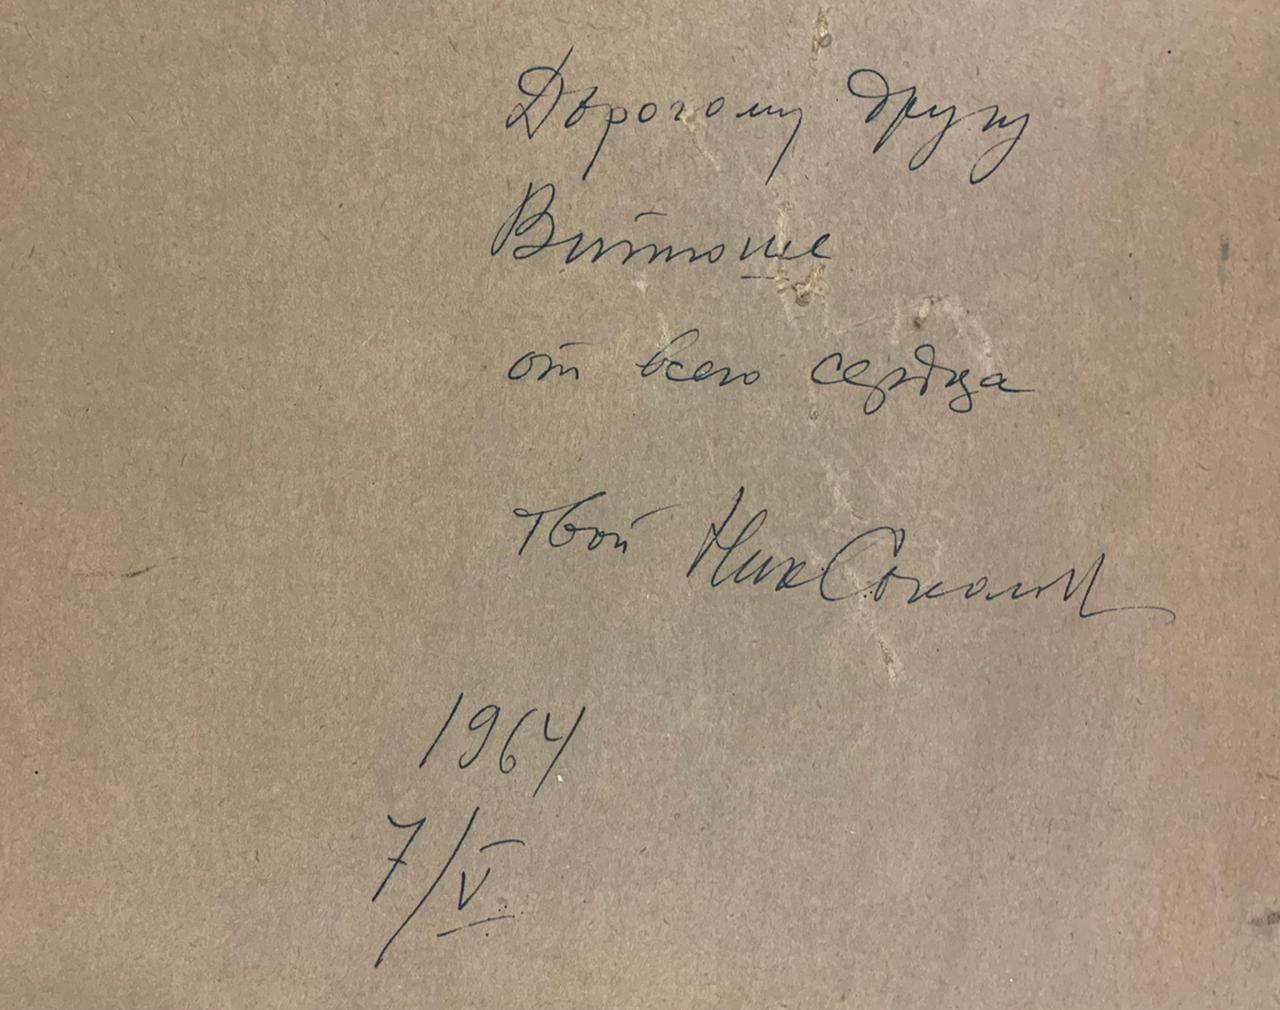 Дорогому другу
Витоше
от всего сердца
твой Ник Соколов
1964
7/V